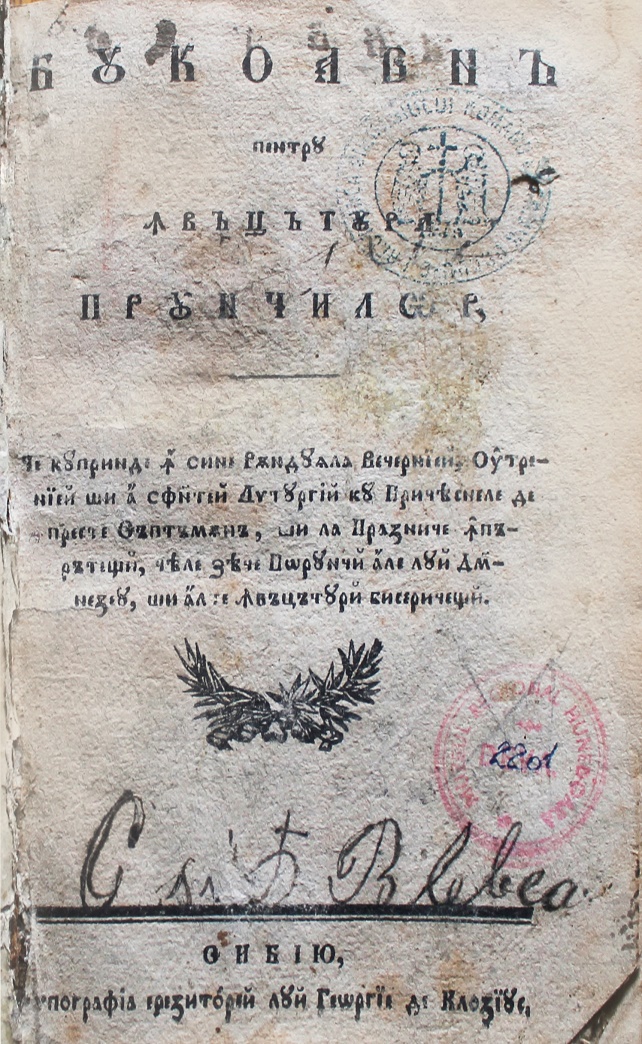 БꙊКОАВНЪ
пентрꙋ
ꙞВЪЦЪТꙊРА
ПРꙊНЧИЛѠР,
Че кꙋпринде ꙟ сине Рѫндꙋѧла Вечернїей, Оу҆тре-
нїей ши а҆ сфи́нтей Лѵтꙋргїй кꙋ Причѣснеле де
престе Съптъмѫнъ, ши ла Празниче ꙟ҆пъ-
рътещй, чѣле зѣче Пѡрꙋнчй а҆ле лꙋй Дм-
незеꙋ, ши а҆лте ꙟвъцътꙋрй бисеричещй.
2201
СИБІЮ,
Типографїа ерезито́рей лꙋй Геѡргїе де Клозїꙋс,